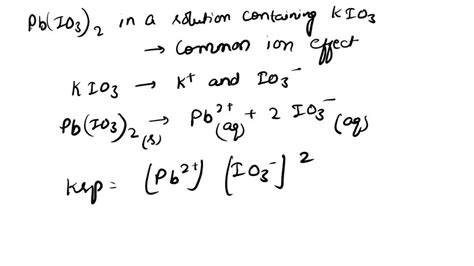 Pb(IO3)2 in a solution containing KIO3
→ Common ion effect
KIO3 → K+ and IO3-
Pb(IO3)2(s) → Pb2+(aq) + 2 IO3-(aq)
Ksp = (Pb2+) [IO3-]2